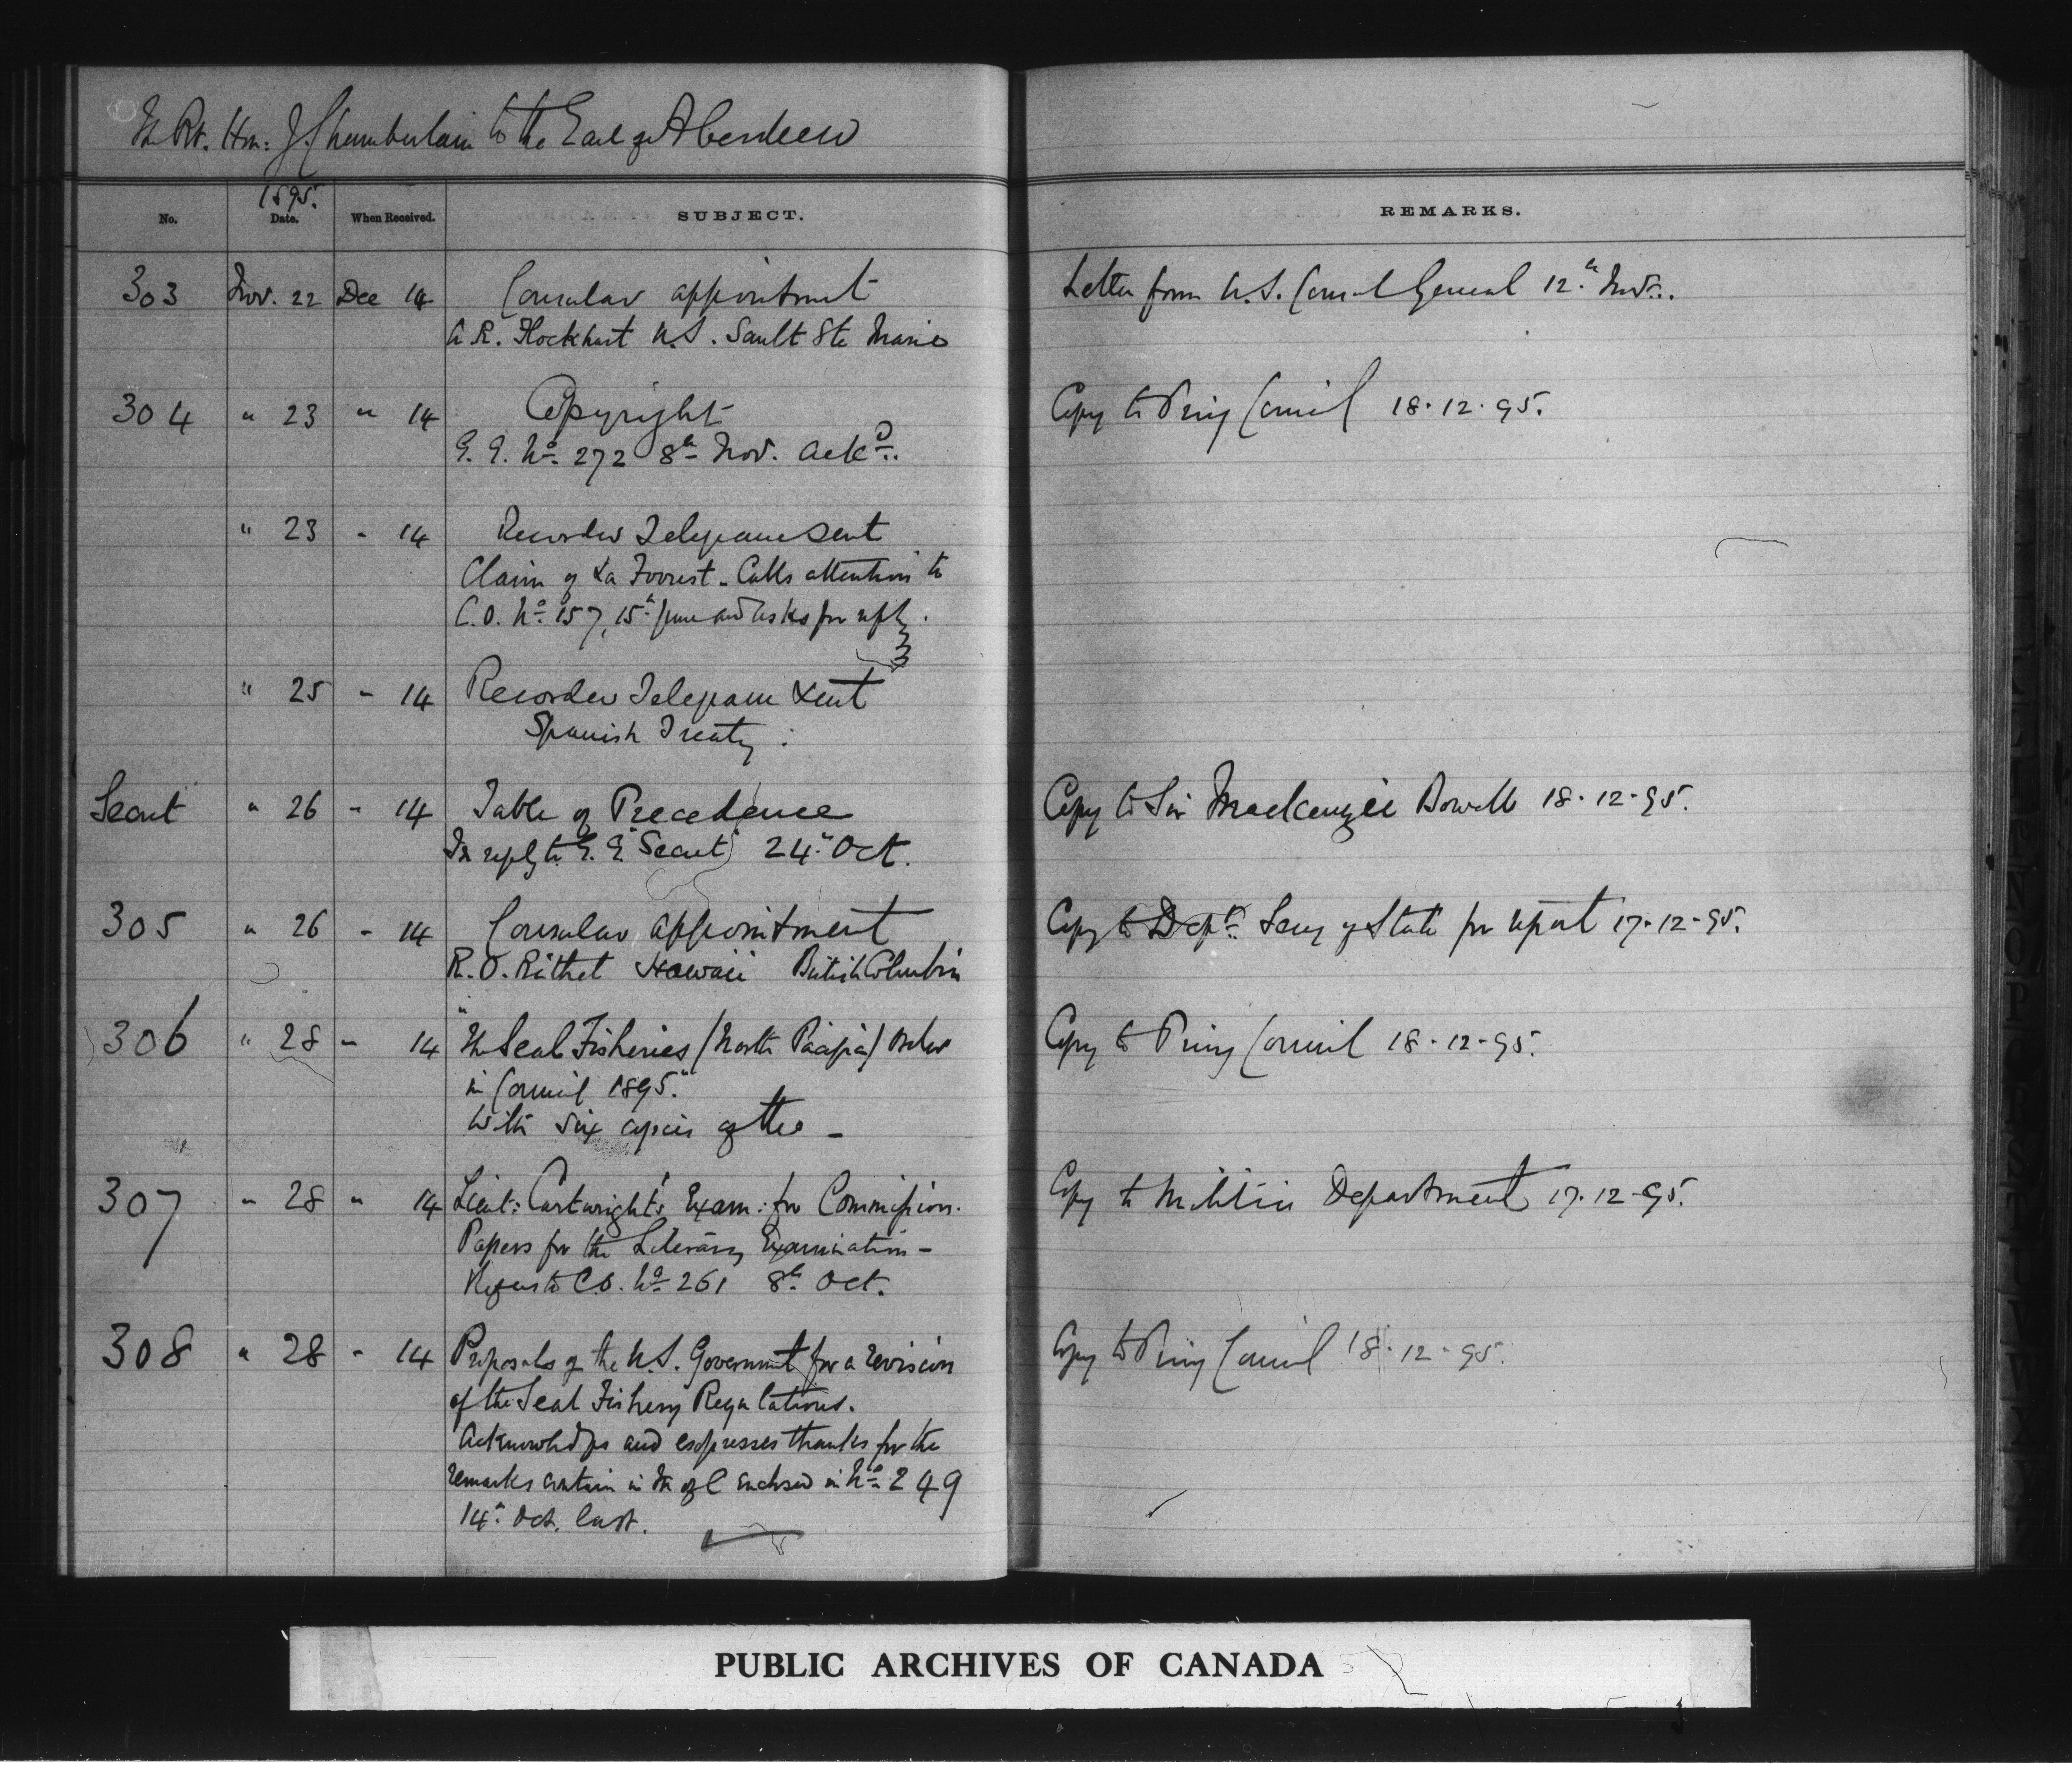 The Rt. Hon: J. Chamberlain to the Earl of Aberdeen
1895.
No. Date. When Received. SUBJECT. REMARKS.
303 Nov. 22 Dec 14 Consular appointment Letter from U.S. Consul General 12th Nov..
A. R. Flockhart U.S. Sault Ste Marie
304 " 23 " 14 Copyright Copy to Privy Council 18.12.95.
G. G. No. 272 8th Nov. Ackd..
" 23 - 14 Recorder Telegram sent
Claim of La Forrest. Calls attention to
C.O. No. 157, 15th June and asks for reply.
" 25 - 14 Recorder Telegram sent
Spanish Treaty.
Secret " 26 - 14 Table of Precedence Copy to Sir Mackenzie Bowell 18.12.95.
In reply to G. G. "Secret" 24th Oct.
305 " 26 - 14 Consular appointment Copy to Dept. Secy of State for report 17.12.95.
R. P. Rithet Hawaii British Columbia
306 " 28 - 14 "The Seal Fisheries (North Pacific) Order Copy to Privy Council 18.12.95.
in Council 1895."
With six copies of the -
307 " 28 " 14 Lieut: Cartwright's Exam: for Commission. Copy to Militia Department 17.12.95.
Papers for the Literary Examination -
Refers to C.O. No. 261 8th Oct.
308 " 28 - 14 Proposals of the U.S. Government for a revision Copy to Privy Council 18.12.95.
of the Seal Fishery Regulations.
Acknowledges and expresses thanks for the
remarks contain in M of C enclosed in No. 249
14th Oct. last.
PUBLIC ARCHIVES OF CANADA